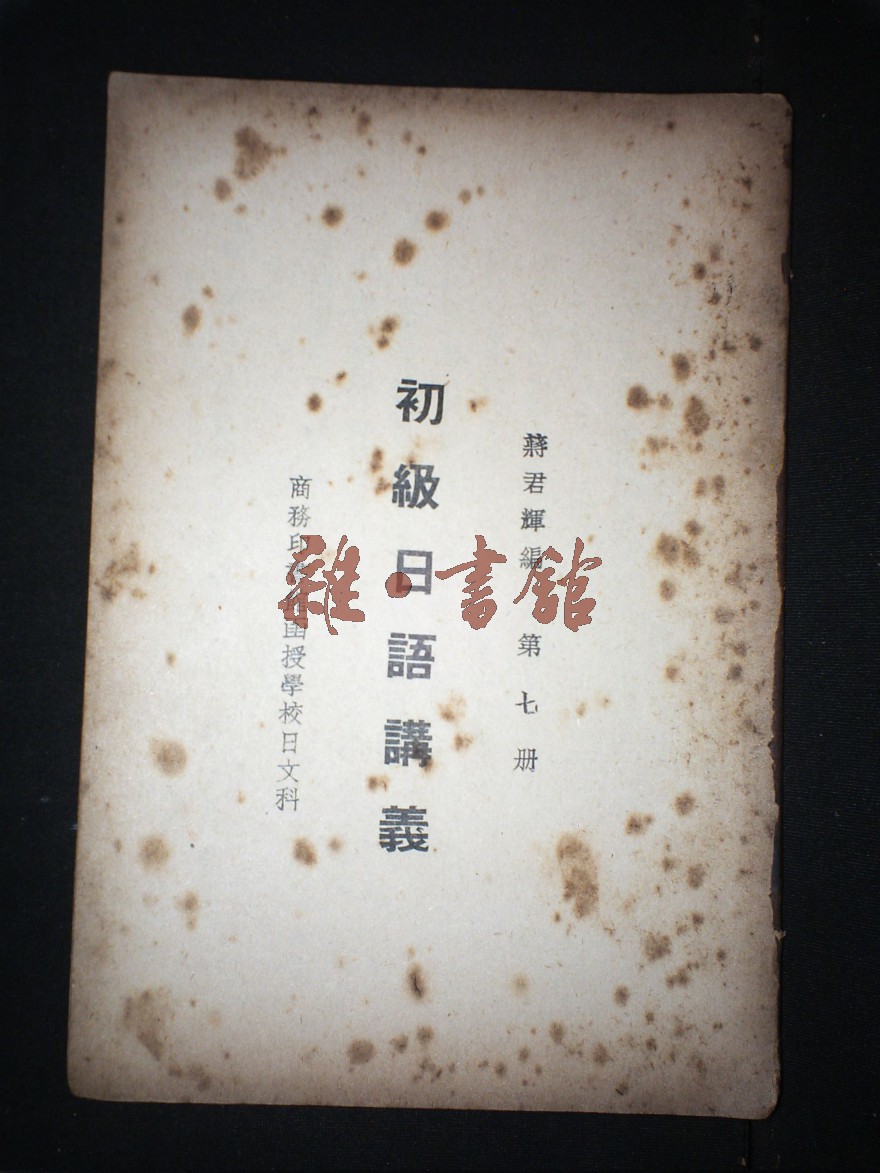 蔣君輝編 第七册
初級日語講義
商務印書館函授學校日文科
雜·書館